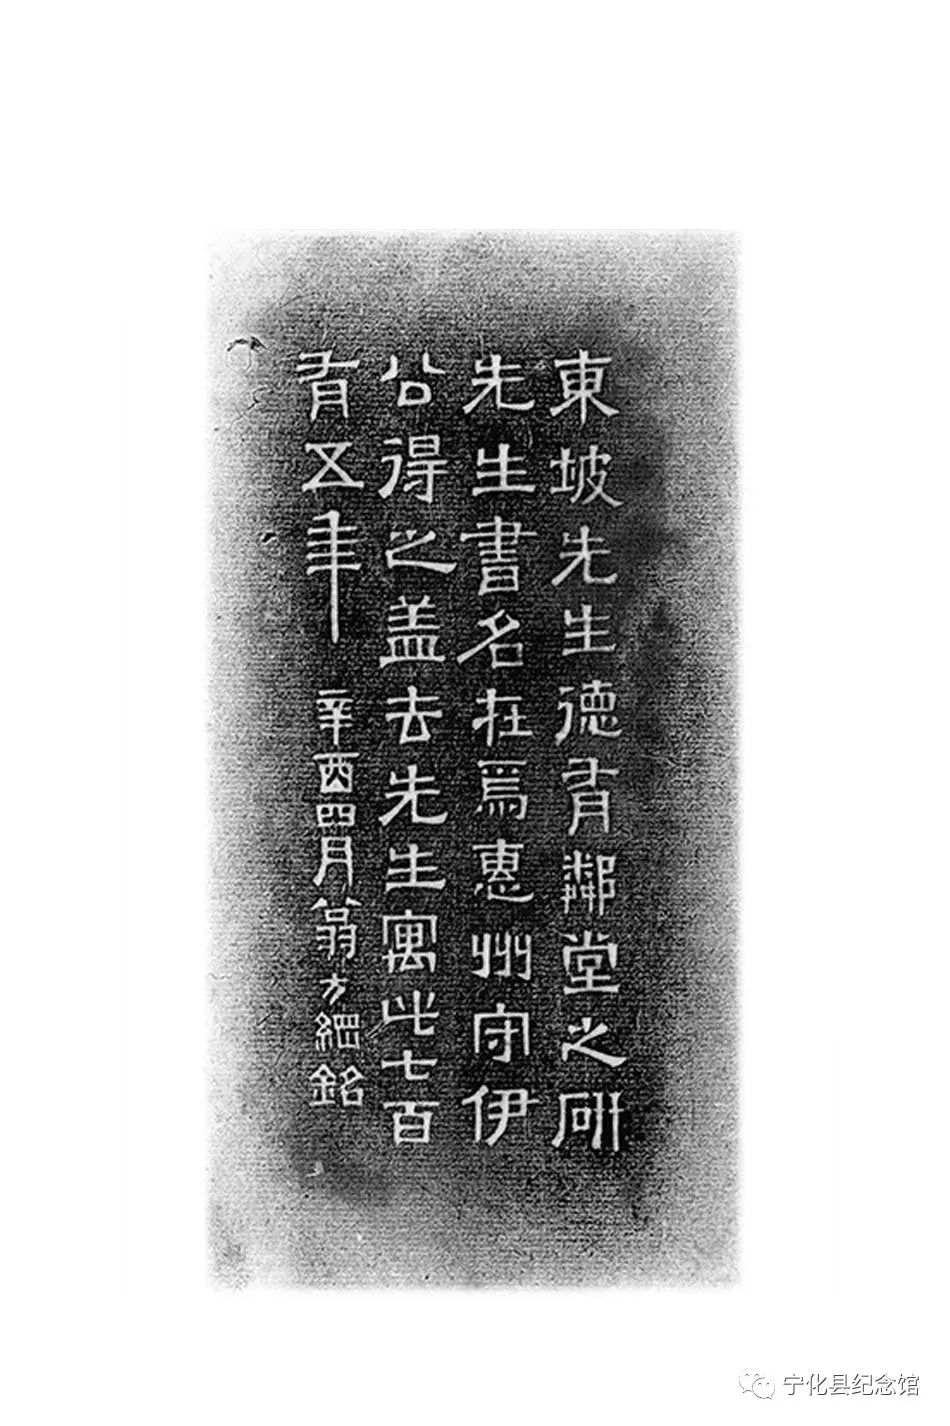 東坡先生德有鄰堂之硏
先生書名在焉惠州守伊
公得之蓋去先生寓此七百
有五年
辛酉四月翁方綱銘
宁化县纪念馆